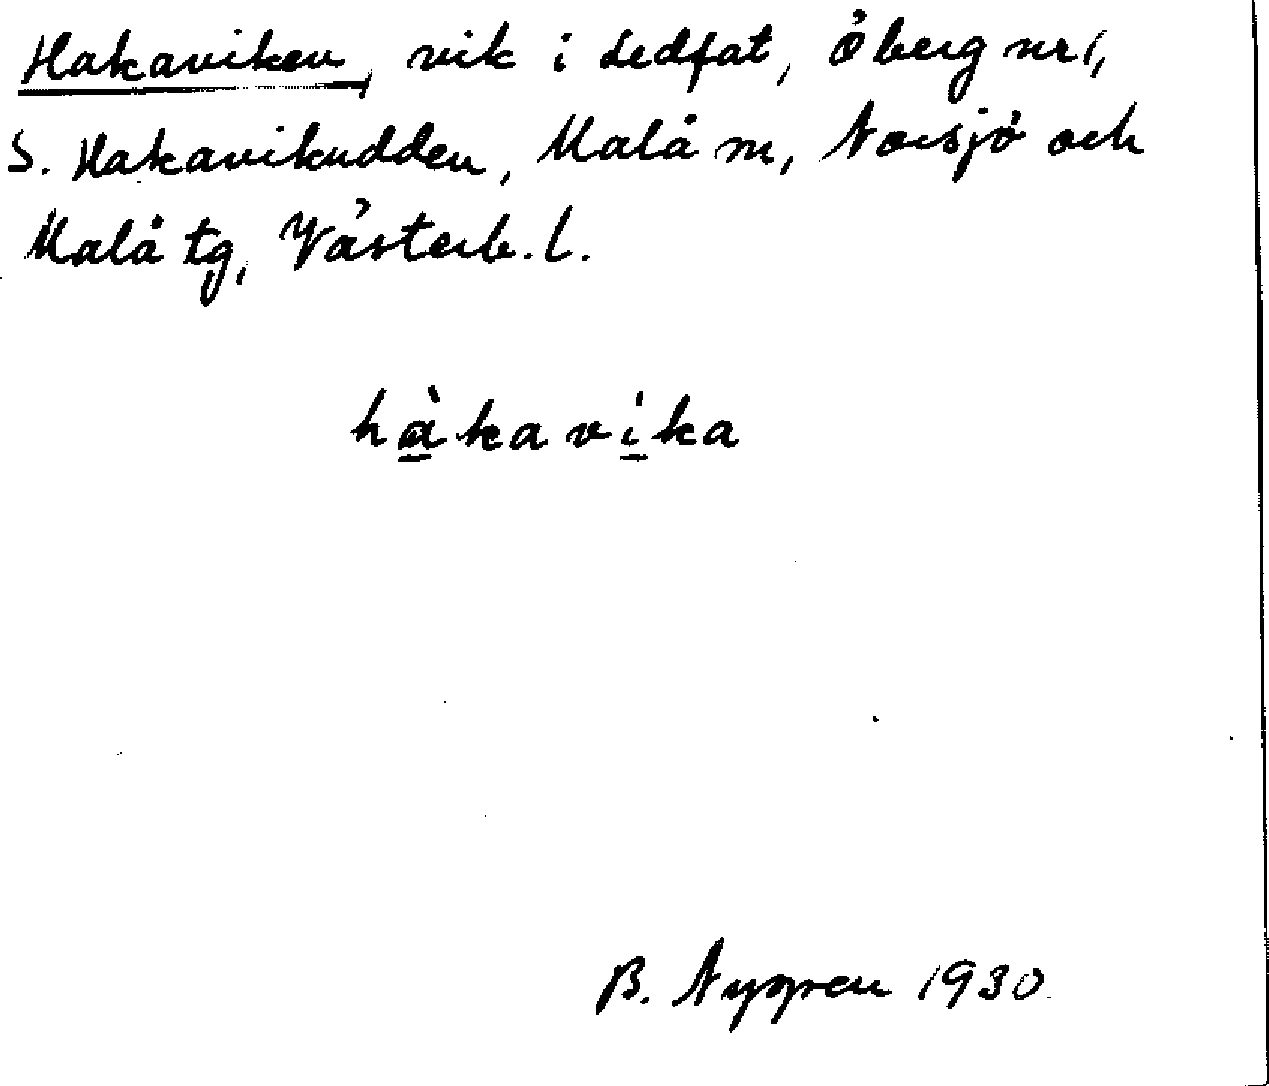 Hakaviken, vik i Ledfat, Öberg nr 1,
S. Hakavikudden, Malå m, Norsjö och
Malå tg, Västerb. l.
hàkavíka
B. Nygren 1930